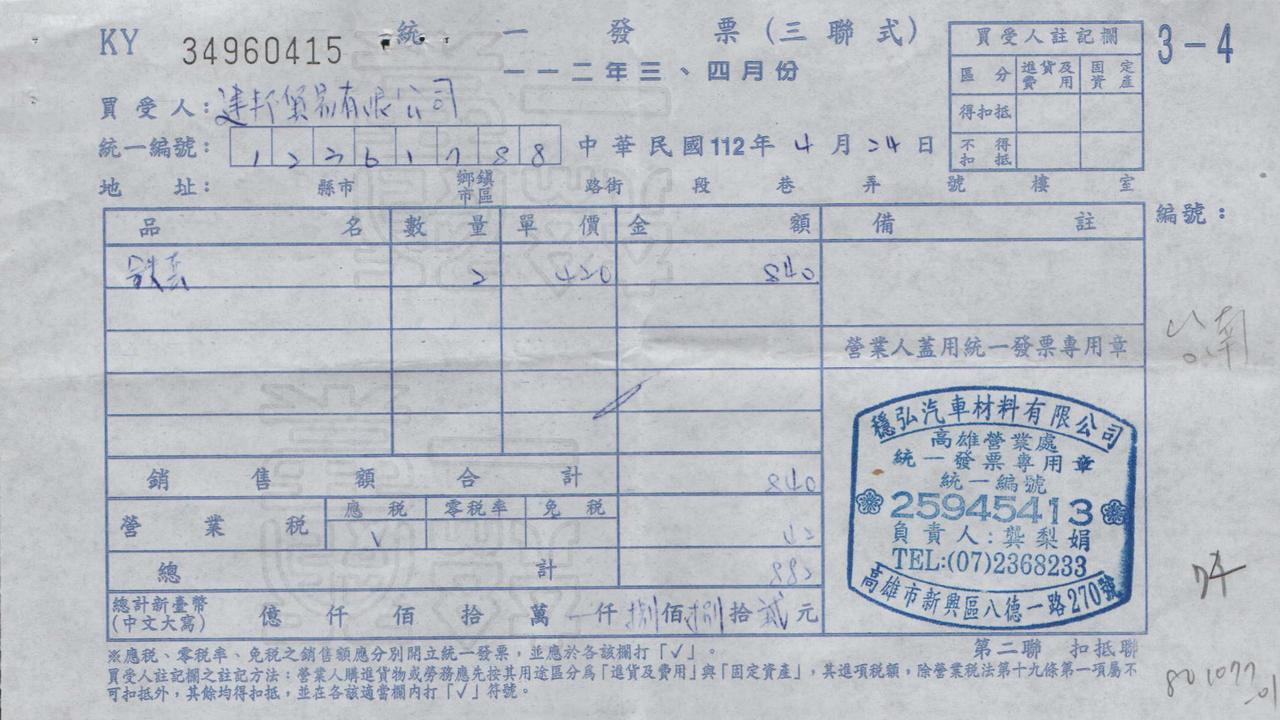 KY 34960415 統一發票(三聯式)
一一二年三、四月份
買受人註記欄
區分 進貨及費用 固定資產
得扣抵
不得扣抵
3-4
買受人:建邦貿易有限公司
統一編號: 12361788 中華民國112年4月24日
地址: 縣市 鄉鎮市區 路街 段 巷 弄 號 樓 室
品名 數量 單價 金額 備註
編號:
2 420 840
營業人蓋用統一發票專用章
台南
銷售額合計 840
營業稅 應稅 零稅率 免稅
V 42
總計 882
總計新臺幣(中文大寫) 億仟佰拾萬一仟捌佰捌拾貳元
穩弘汽車材料有限公司
高雄營業處
統一發票專用章
統一編號
25945413
負責人:龔梨娟
TEL:(07)2368233
高雄市新興區八德一路270號
第二聯 扣抵聯
※應稅、零稅率、免稅之銷售額應分別開立統一發票,並應於各該欄打「√」。
買受人註記欄之註記方法:營業人購進貨物或勞務應先按其用途區分為「進貨及費用」與「固定資產」,其進項稅額,除營業稅法第十九條第一項屬不
可扣抵外,其餘均得扣抵,並在各該適當欄內打「√」符號。
801077
01